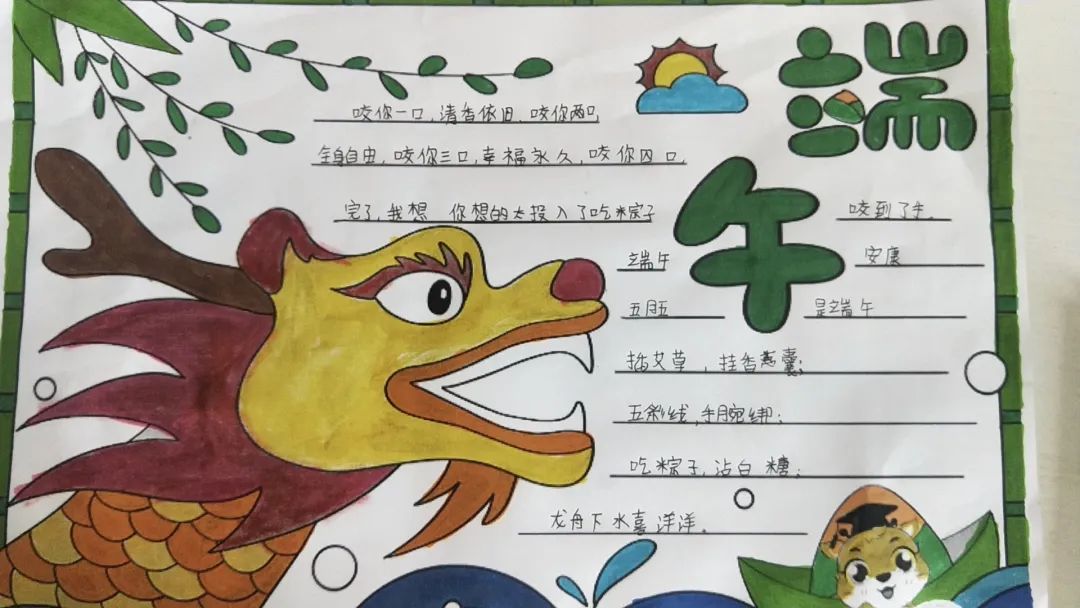 端
午
咬你一口,清香依旧,咬你两口,
全身自由,咬你三口,幸福永久,咬你四口,
完了,我想 你想的太投入了吃粽子
咬到了手。
端午 安康
五月五 是端午
插艾草,挂香囊;
五彩线,手腕绑;
吃粽子,沾白糖;
龙舟下水喜洋洋。